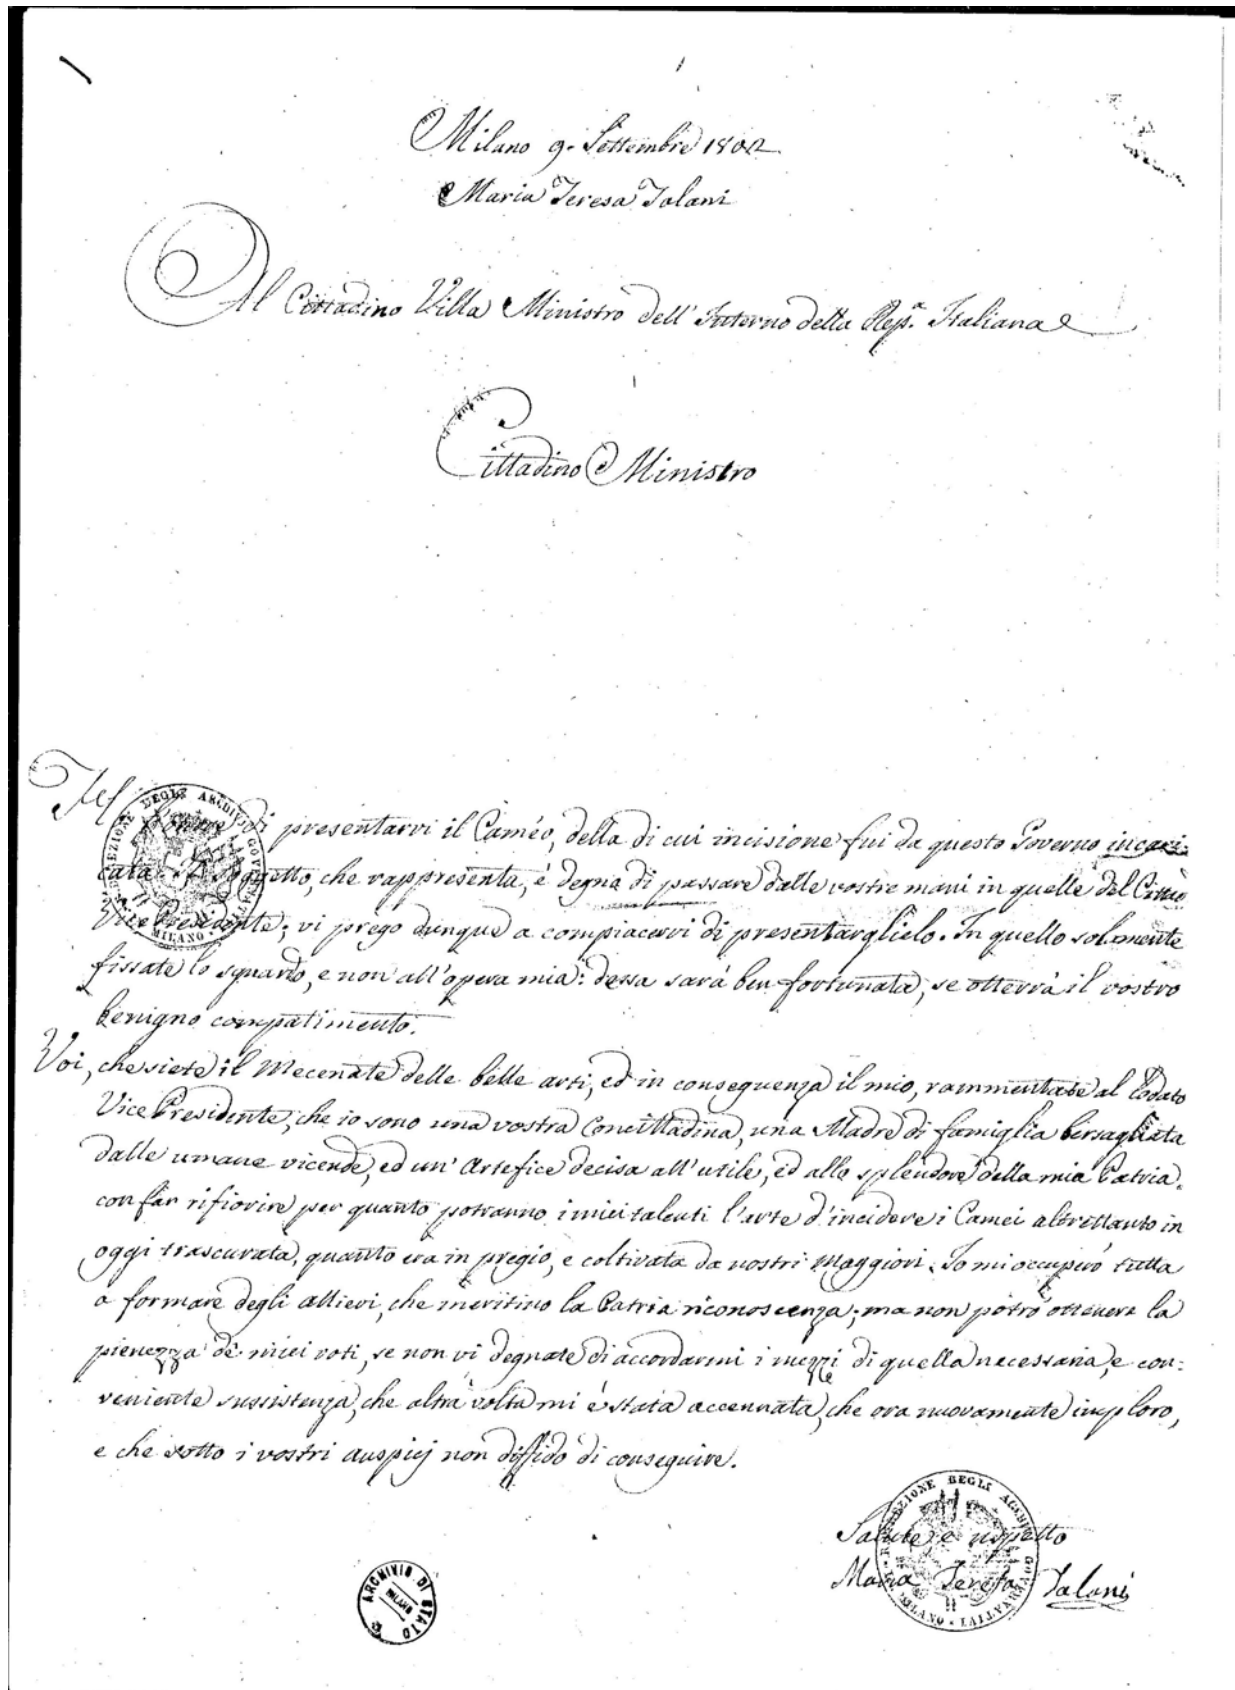 Milano 9. Settembre 1802
Maria Teresa Talani
Al Cittadino Villa Ministro dell' Interno della Rep.a Italiana
Cittadino Ministro
di presentarvi il Caméo, della di cui incisione fui da questo Governo incari:
cata. Il Soggetto, che rappresenta, è degna di passare dalle vostre mani in quelle del Citt.no
Vice Presidente; vi prego dunque a compiacervi di presentarglielo. In quello solamente
fissate lo sguardo, e non all'opera mia: dessa sarà ben fortunata, se otterrà il vostro
benigno compatimento.
Voi, che siete il Mecenate delle belle arti, ed in conseguenza il mio, rammentate al Lodato
Vice Presidente, che io sono una vostra Concittadina, una Madre di famiglia bersagliata
dalle umane vicende, ed un' Artefice decisa all'utile, ed allo splendore della mia Patria.
con far rifiorire per quanto potranno i miei talenti l'arte d'incidere i Camei altrettanto in
oggi trascurata, quanto era in pregio, e coltivata da nostri Maggiori. Io mi occuperò tutta
a formare degli allievi, che meritino la Patria riconoscenza; ma non potrò ottenere la
pienezza de' miei voti, se non vi degnate di accordarmi i mezzi di quella necessaria, e con:
veniente sussistenza, che altra volta mi è stata accennata, che ora nuovamente imploro,
e che sotto i vostri auspicj non diffido di conseguire.
Salute e rispetto
Maria Teresa Talani
ARCHIVIO DI STATO
MILANO